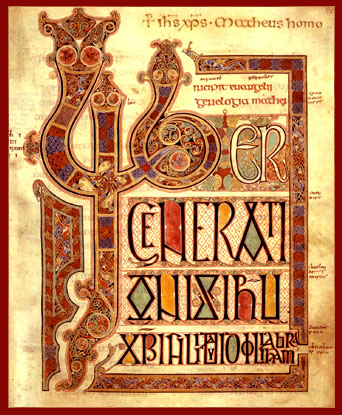 + ihs xps. Matheus homo
incipit evangelii
genelogia mathei
LIBER
GENERATI
ONIS IHU
XPI FILII DAUID FILII ABRAHAM